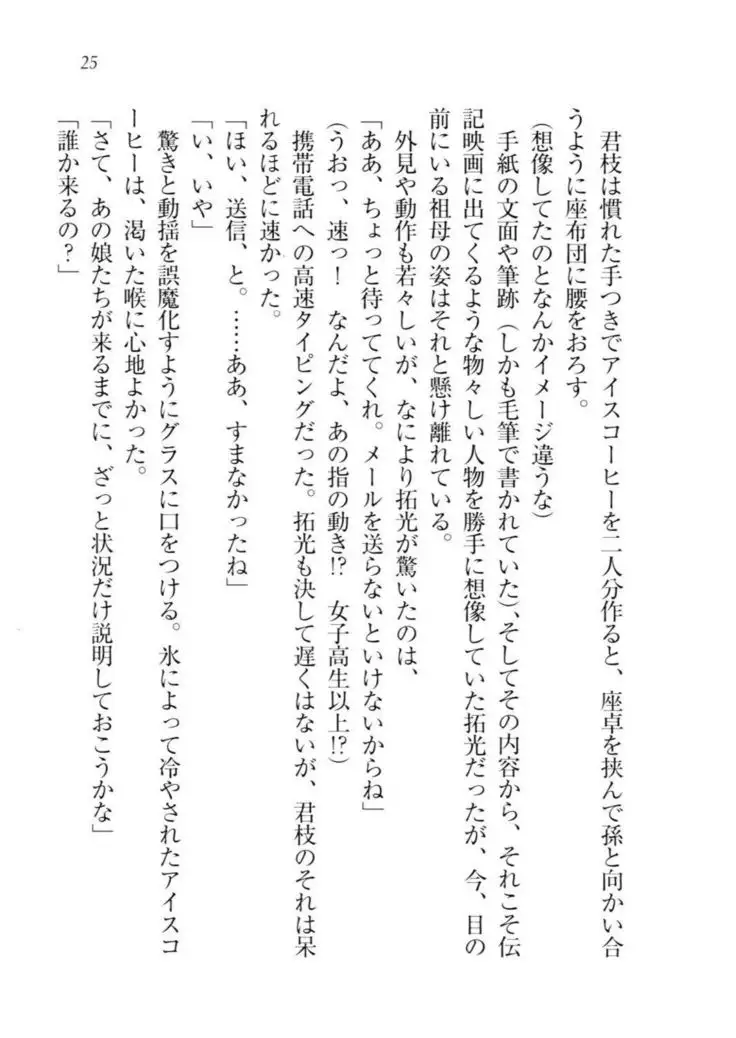 25
君枝は慣れた手つきでアイスコーヒーを二人分作ると、座卓を挟んで孫と向かい合
うように座布団に腰をおろす。
(想像してたのとなんかイメージ違うな)
手紙の文面や筆跡(しかも毛筆で書かれていた)、そしてその内容から、それこそ伝
記映画に出てくるような物々しい人物を勝手に想像していた拓光だったが、今、目の
前にいる祖母の姿はそれと懸け離れている。
外見や動作も若々しいが、なにより拓光が驚いたのは、
「ああ、ちょっと待っててくれ。メールを送らないといけないからね」
(うおっ、速っ! なんだよ、あの指の動き!? 女子高生以上!?)
携帯電話への高速タイピングだった。拓光も決して遅くはないが、君枝のそれは呆
れるほどに速かった。
「ほい、送信、と。……ああ、すまなかったね」
「い、いや」
驚きと動揺を誤魔化すようにグラスに口をつける。氷によって冷やされたアイスコ
ーヒーは、渇いた喉に心地よかった。
「さて、あの娘たちが来るまでに、ざっと状況だけ説明しておこうかな」
「誰か来るの?」